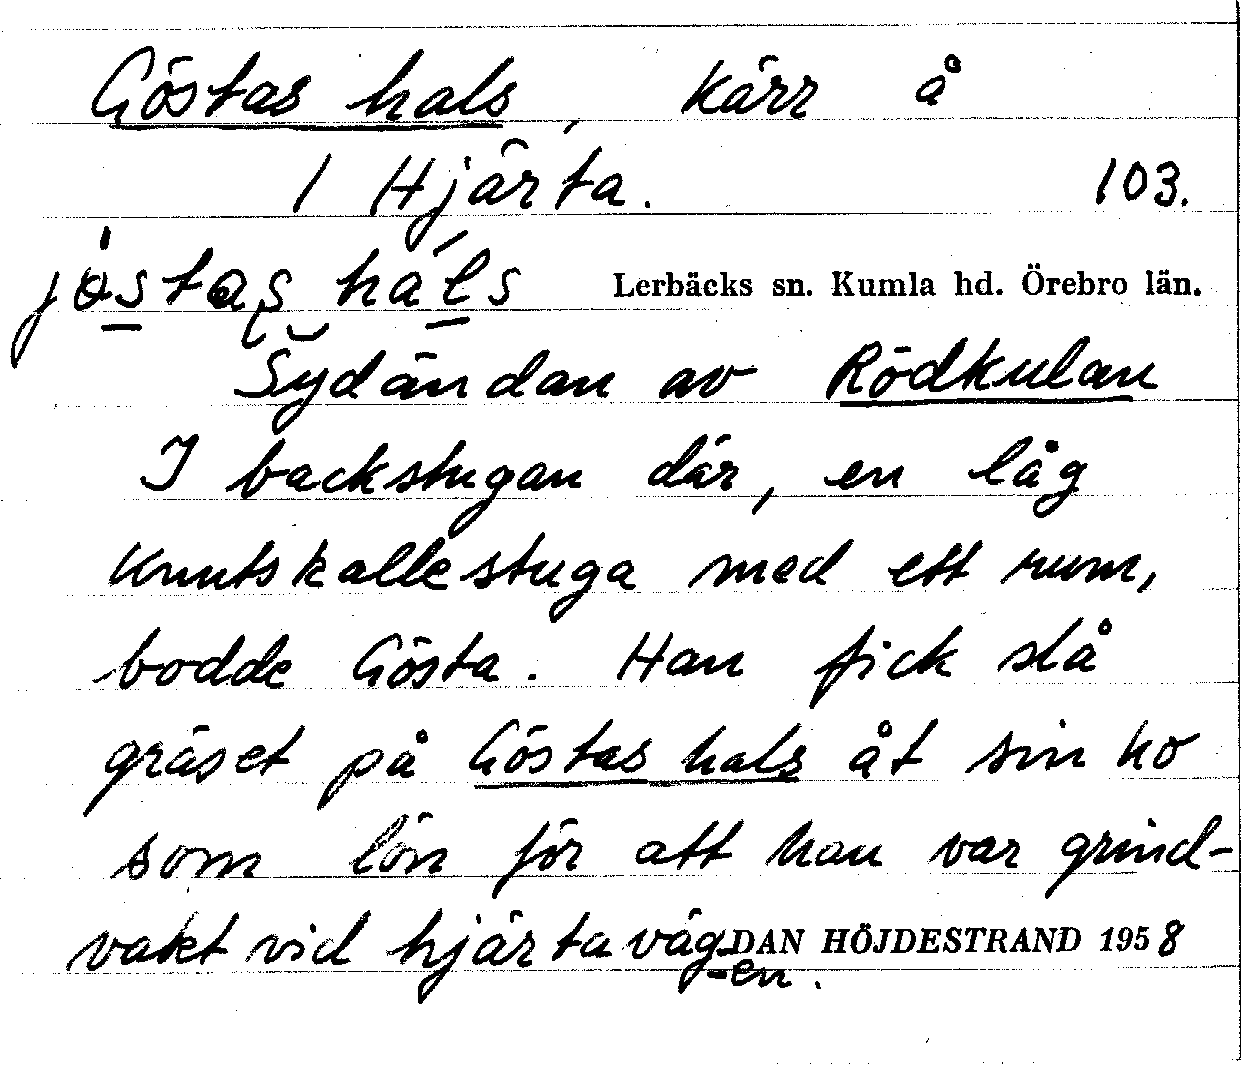 Göstas hals, kärr å
1 Hjärta. 103.
jöstas háls Lerbäcks sn. Kumla hd. Örebro län.
Sydändan av Rödkulan
I backstugan där, en låg
Knutskallestuga med ett rum,
bodde Gösta. Han fick slå
gräset på Göstas hals åt sin ko
som lön för att han var grind-
vakt vid hjärtaväg- DAN HÖJDESTRAND 1958
en.